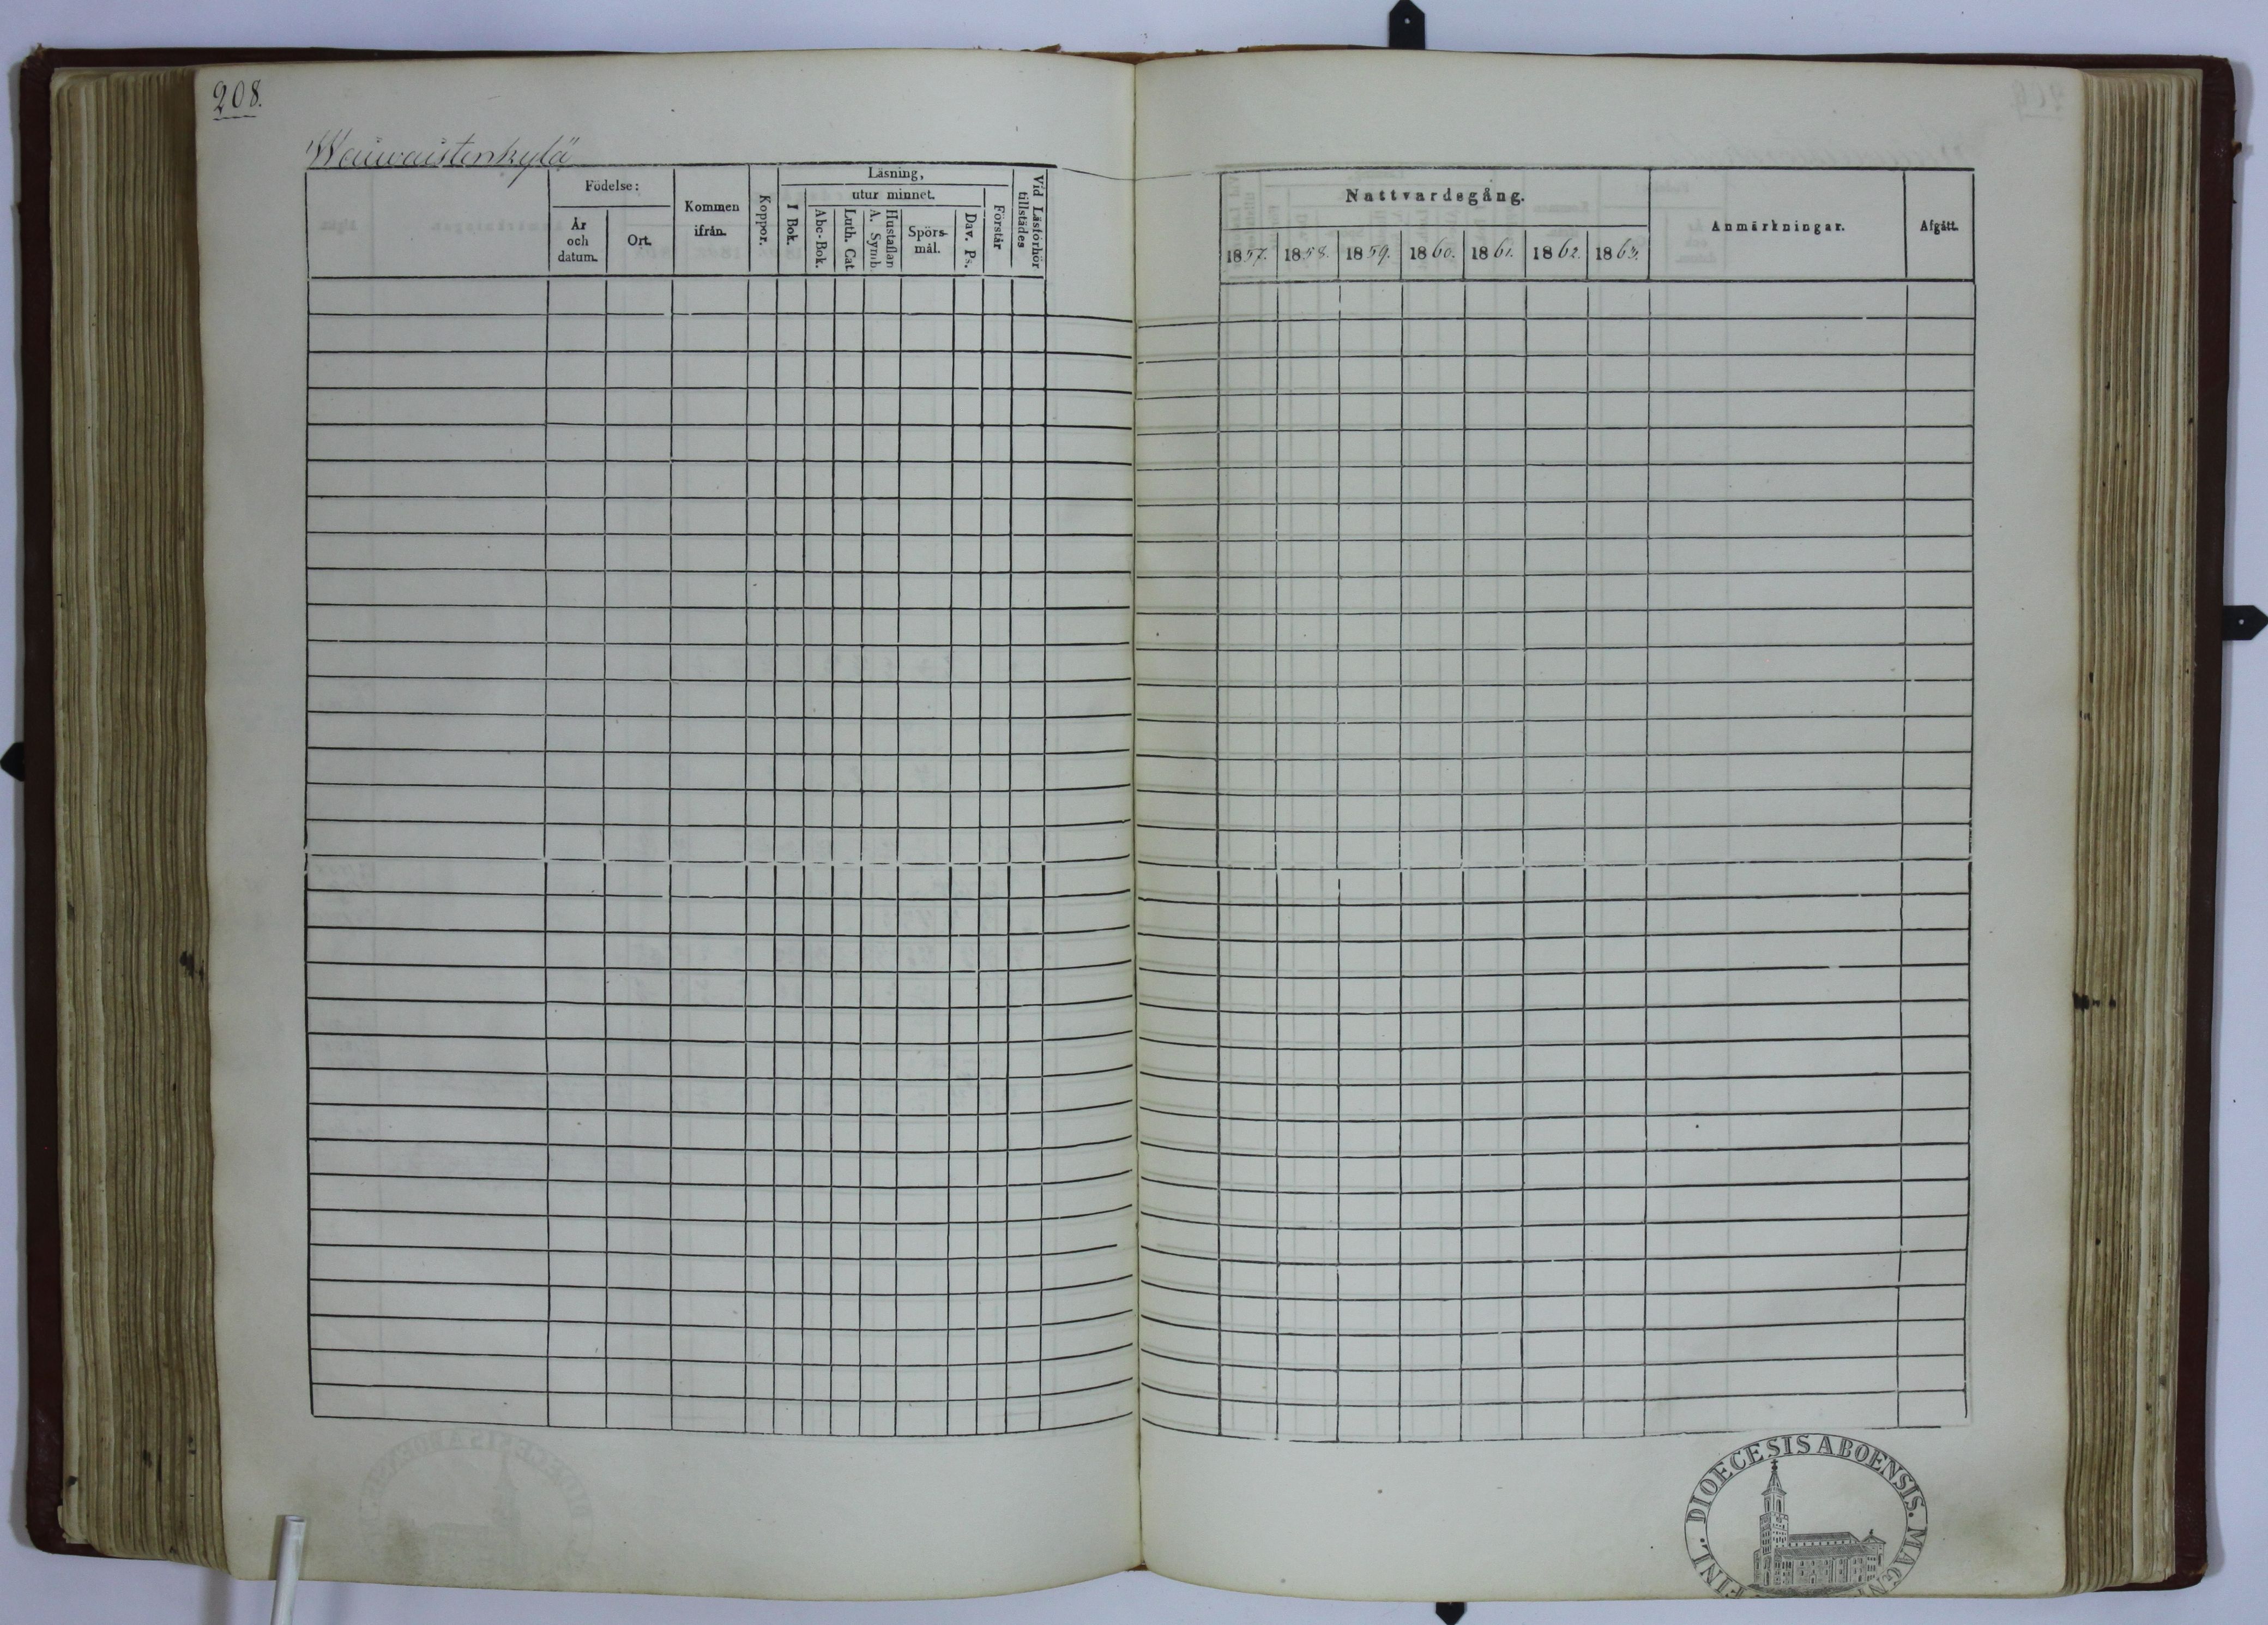 208.
Waiwaistenkylä
Födelse:
År
och
datum.
Ort.
Kommen
ifrån.
Koppor.
Läsning,
I Bok.
utur minnet.
Abc-Bok.
Luth. Cat.
Hustaflan
A. Symb.
Spörs-
mål.
Dav. Ps.
Förstår
Vid Läsförhör
tillstädes
Nattvardsgång.
1857.
1858.
1859.
1860.
1861.
1862.
1863.
Anmärkningar.
Afgått.
FINL. DIOECESIS ABOENSIS. MAGNI